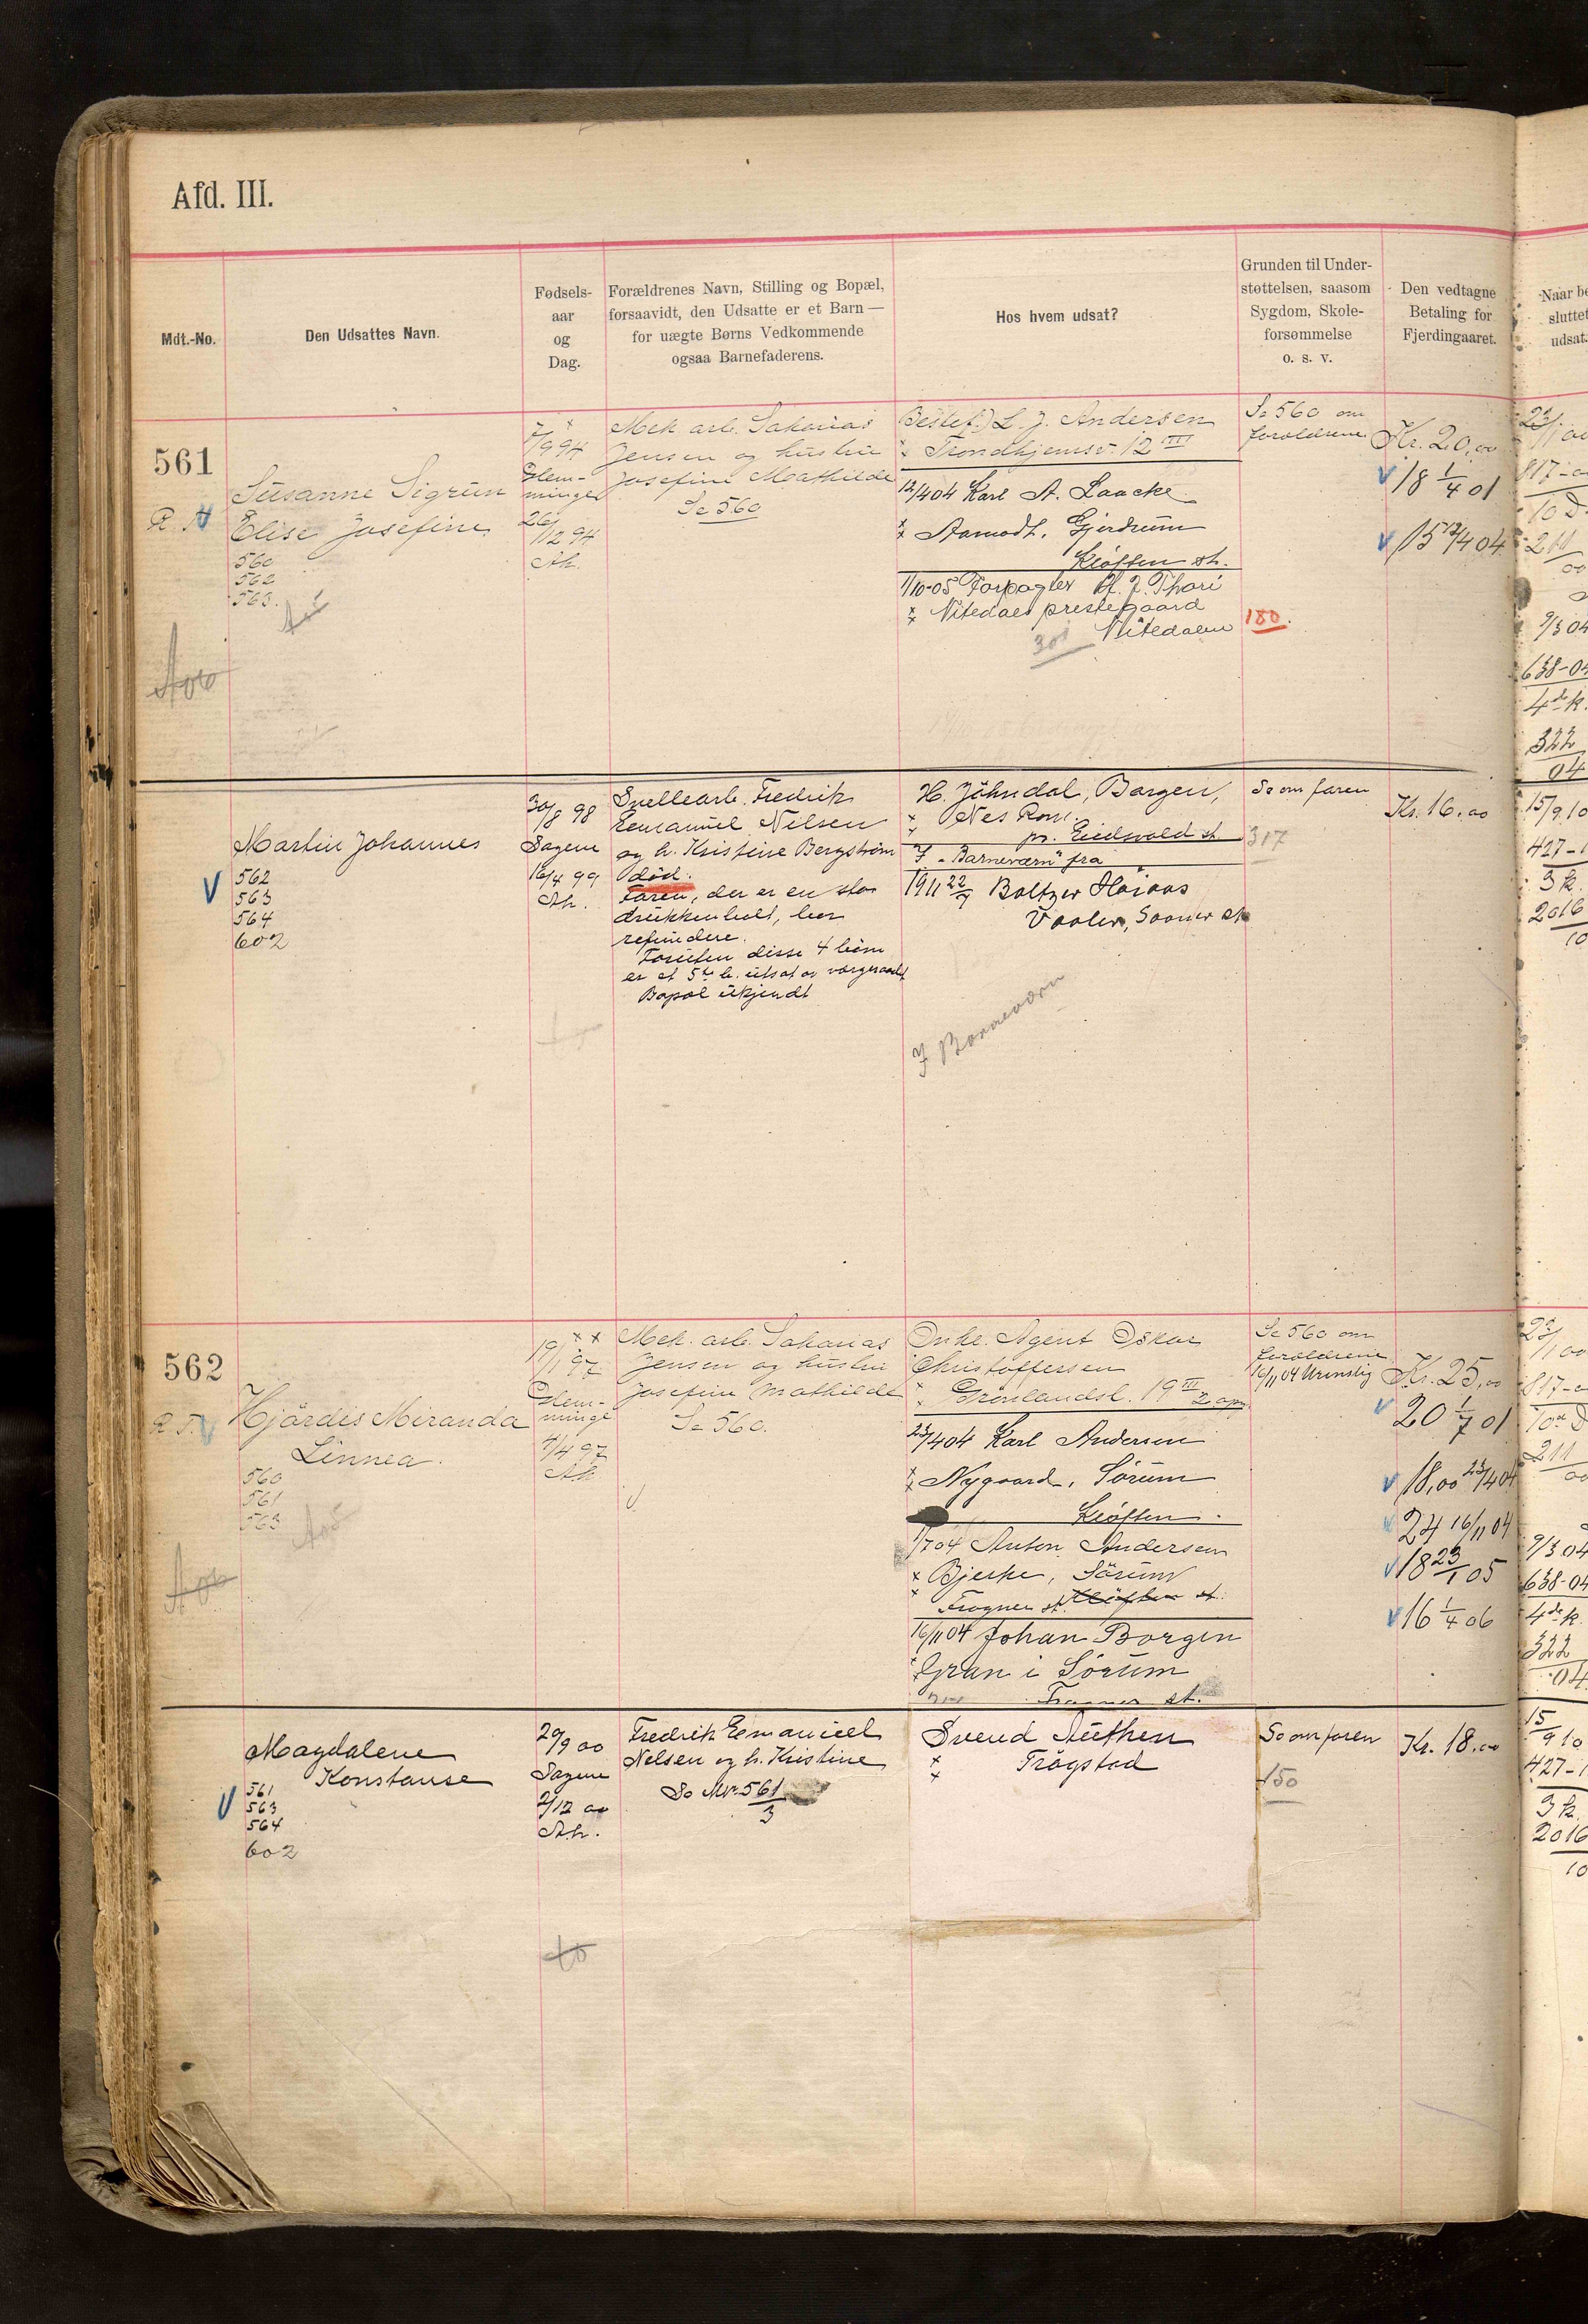 Afd. III.
Mdt.-No.
Den Udsattes Navn.
Fødsels-
aar
og
Dag.
Forældrenes Navn, Stilling og Bopæl,
forsaavidt, den Udsatte er et Barn —
for uægte Børns Vedkommende
ogsaa Barnefaderens.
Hos hvem udsat?
Grunden til Under-
støttelsen, saasom
Sygdom, Skole-
forsømmelse
o. s. v.
Den vedtagne
Betaling for
Fjerdingaaret.
561
Susanne Sigrun
Elise Josefine
560
562
563.
7/9 94
Glem-
minge
26/12 94
Ak.
Mek. arb. Sakarias
Jensen og hustru
Josefine Mathilde
Se 560
(Bestef.) L. J. Andersen
Trondhjemsv. 12 III
12/4 04 Karl A. Laacke
Aamodt, Gjerdrum
Kløften st.
1/10-05 Forpagter H. J. Thori
Nitedals prestegaard
Nitedalen
301
Se 560 om
foreldrene
180.
Kr. 20,00
18 1/4 01
15 12/4 04
Martin Johannes
562
563
564
602
30/8 98
Sagene
16/4 99
Ak.
Spellearb. Fredrik
Emanuel Nilsen
og h. Kristine Bergstrøm
død.
Faren, der er en stor
drukkenbolt, bør
refundere.
Foruten disse 4 børn
er et 5te b. utsat av vergeraadet
Bopæl ukjendt
H. Jöhndal, Borgen,
Nes Rom.
pr. Eidsvold st.
I "Barneværn" fra
1911 22/7 Baltzer Høiaas
Vaaler, Sooner st
I Barneværn
Se om faren
317
Kr. 16,00
562
Hjördis Miranda
Linnea.
560
561
563
19/1 97
Glem-
minge
4/4 97
Ak
Mek. arb. Sakarias
Jensen og hustru
Josefine Mathilde
Se 560.
Onke. Agent Oskar
Christoffersen
Grønlandsl. 19 III 2 opg
23/4 04 Karl Andersen
Nygaard, Sørum
Kløften.
1/7 04 Anton Andersen
Bjerke, Sörum
Frogner st. Kløften st.
16/11 04 Johan Borgen
Gran i Sörum
Frogner st.
Se 560 om
foreldrene
16/11 04 Urenslig
Kr. 25,00
20 1/7 01
18,00 23/4 04
24 16/11 04
18 23/1 05
16 1/4 06
Magdalene
Konstanse
561
563
564
602
29/9 00
Sagene
2/12 00
Ak.
Fredrik Emanuel
Nelsen og h. Kristine
Se Mnr 561/3
Svend Authen
Trögstad
Se om faren
150
Kr. 18,00